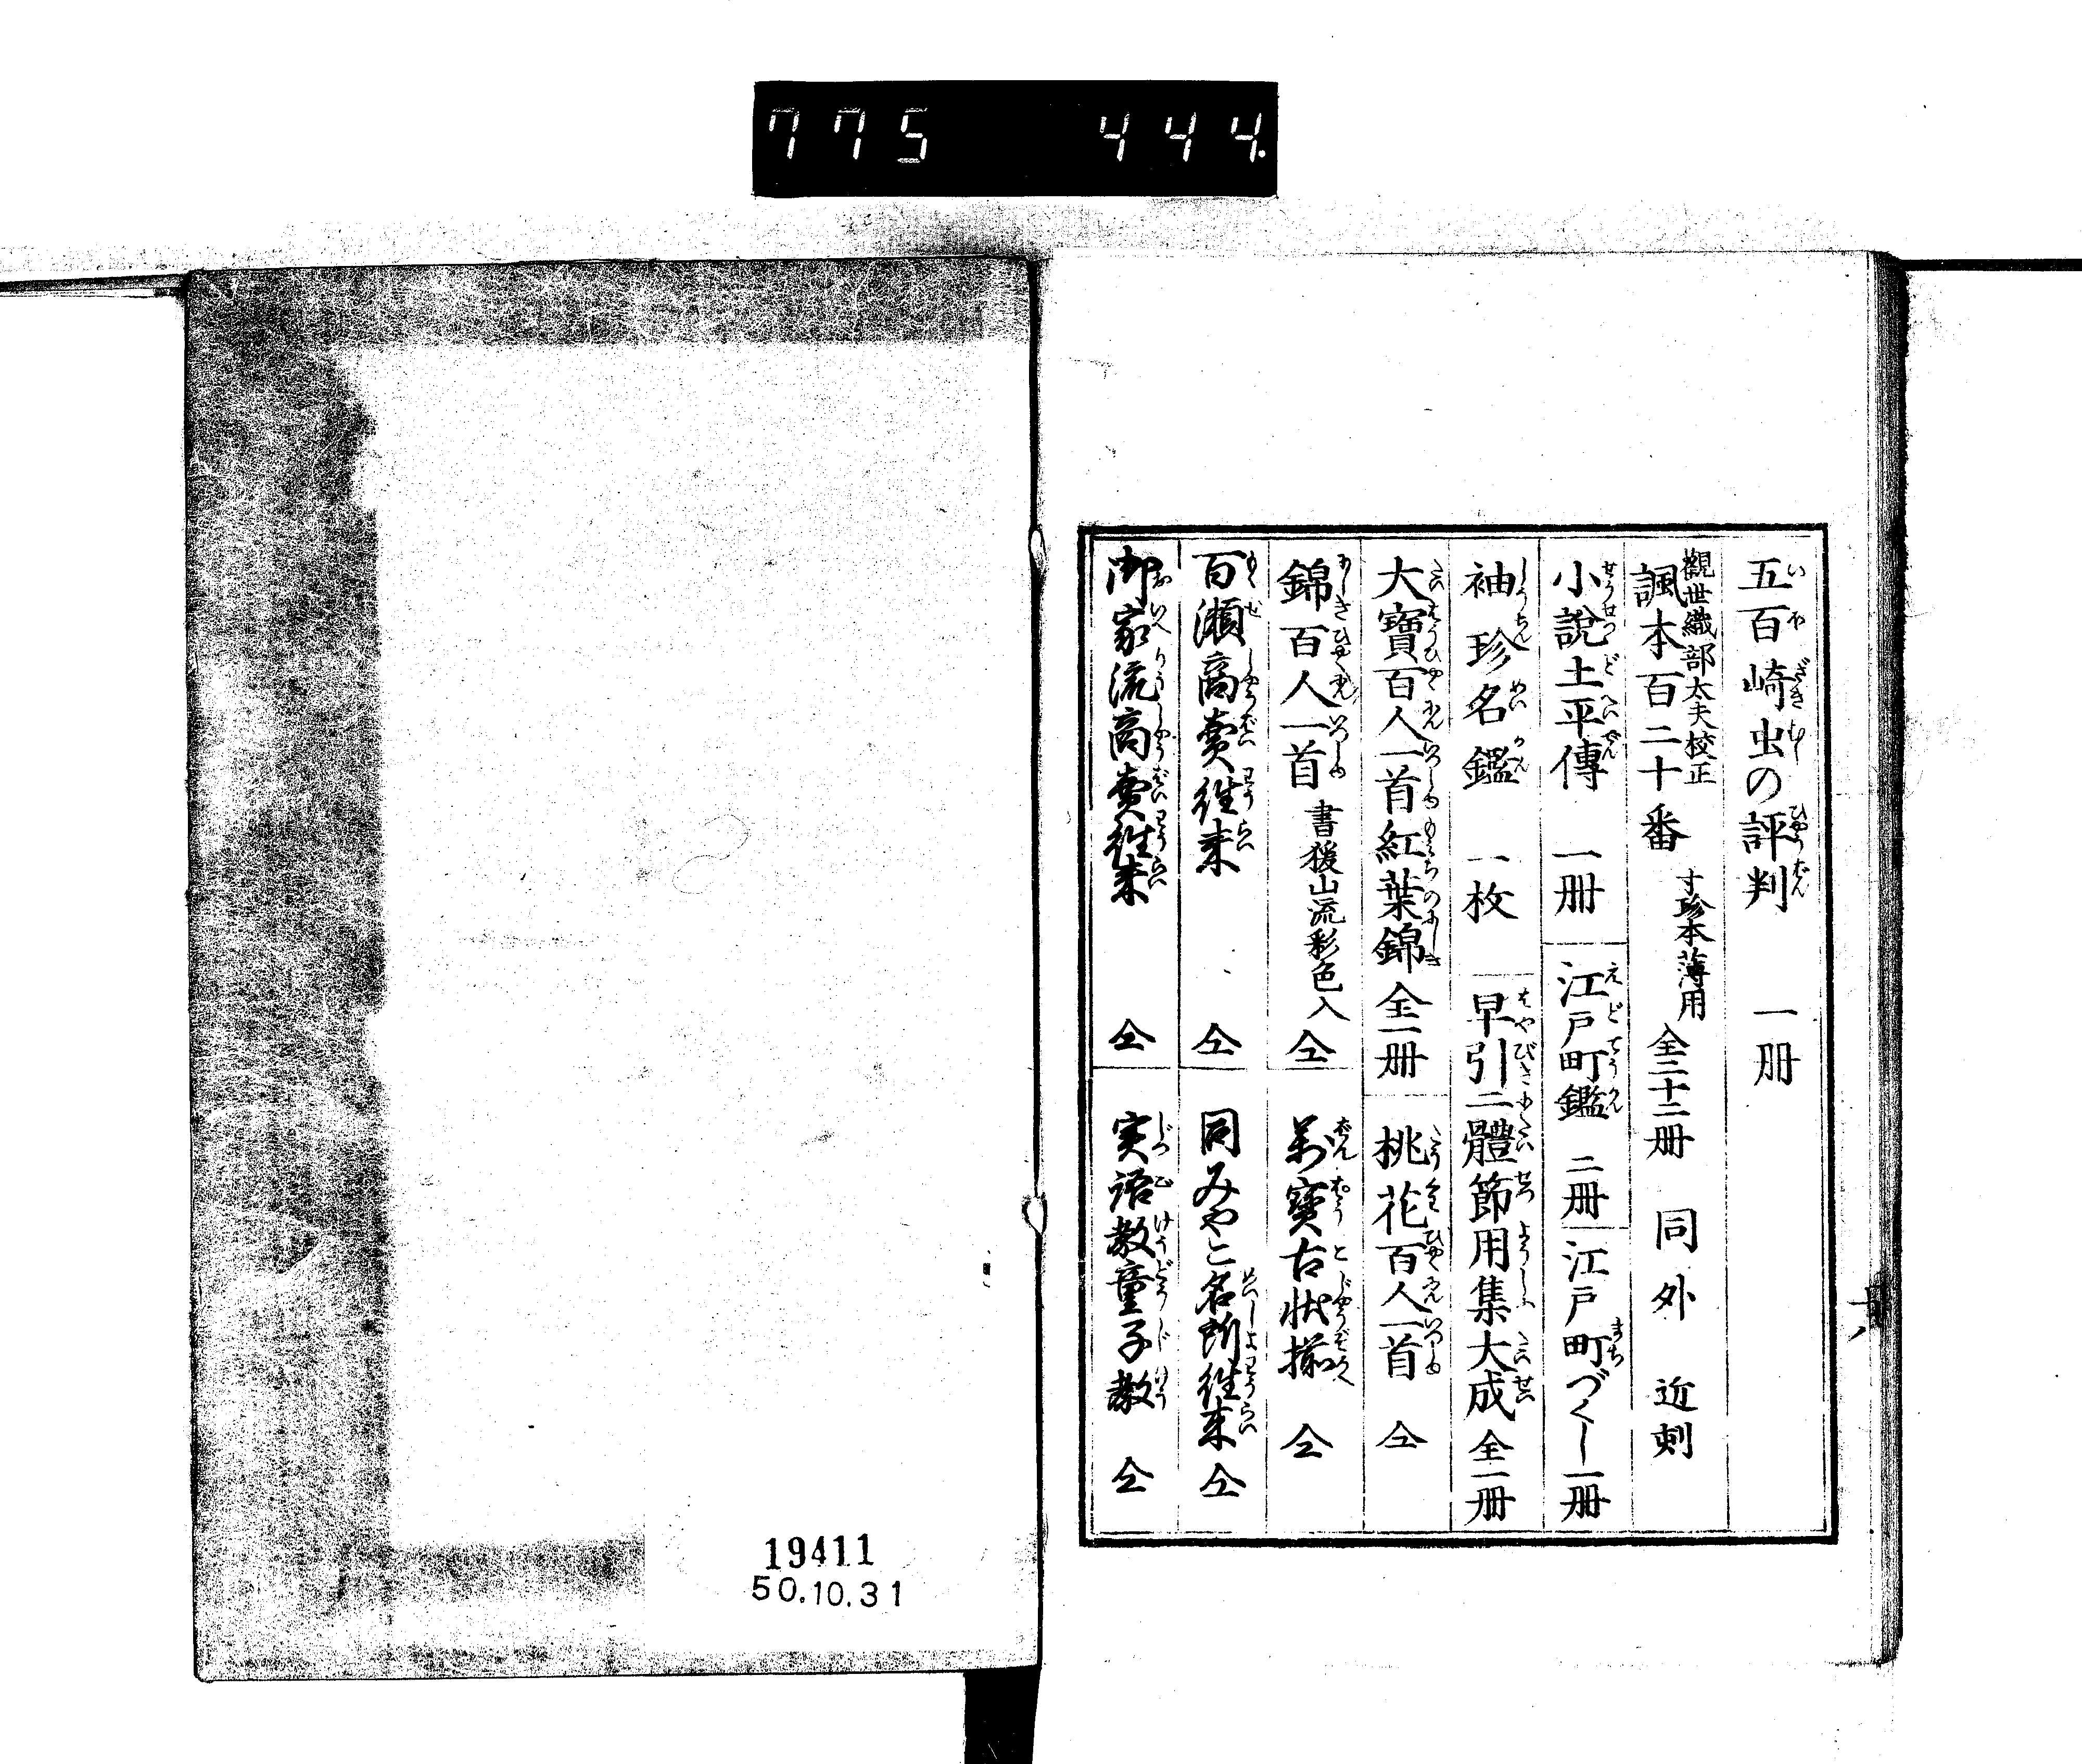 775 444.
五百崎虫の評判 一册
觀世織部太夫校正
諷本百二十番 寸珍本薄用 全二十二册 同外 近刻
小說土平傳 一册
江戸町鑑 二册
江戸町づくし 一册
袖珍名鑑 一枚
早引二體節用集大成 全一册
大寶百人一首紅葉錦 全一册
桃花百人一首 仝
錦百人一首 書猨山流彩色入 仝
万寶古状揃 仝
百瀬商賣往来 仝
同みやこ名所往来 仝
御家流商賣往来 仝
実語教童子教 仝
19411
50.10.31